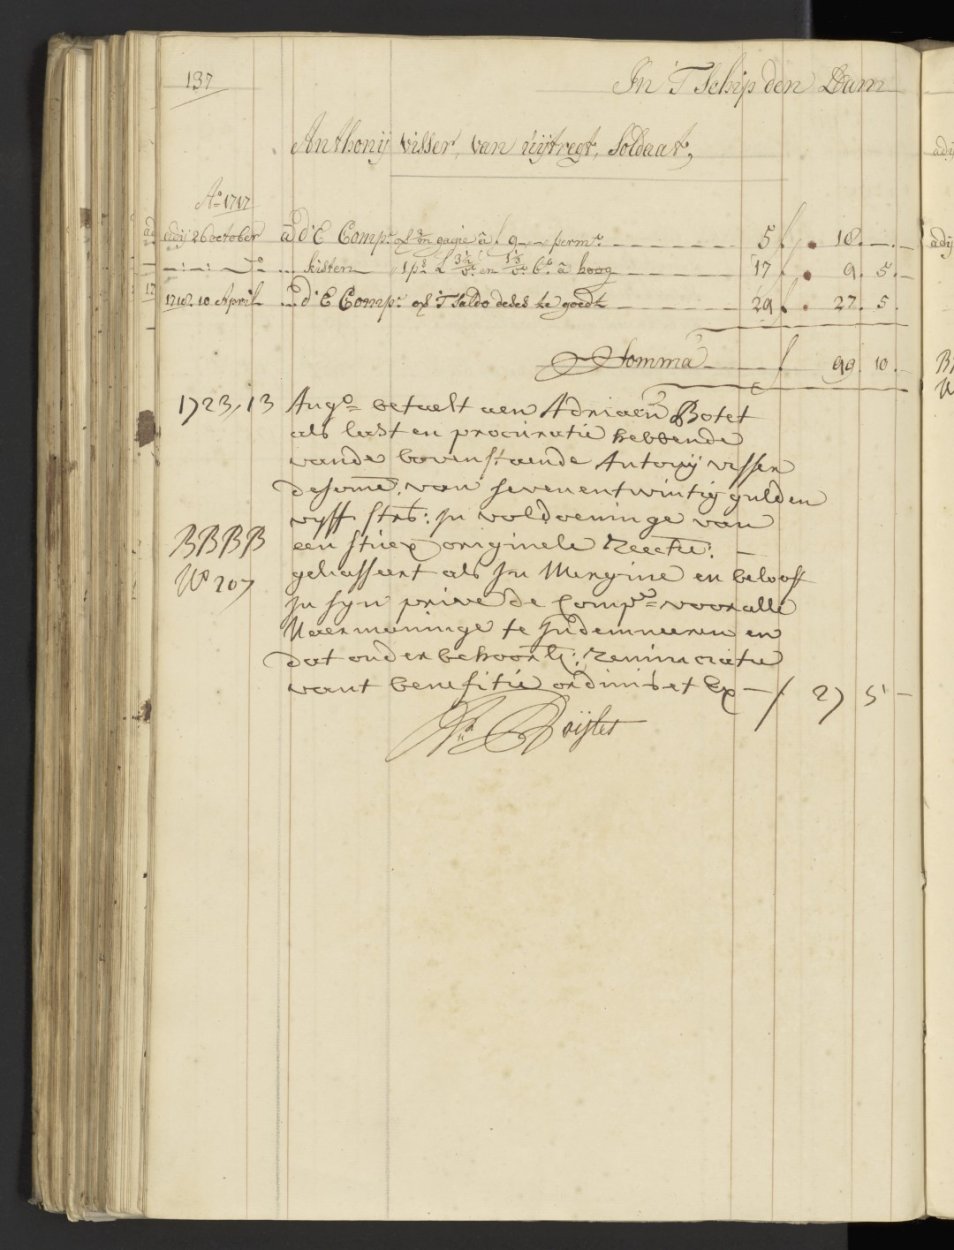 137
In 'T Schip den Dam
Anthonij Visser, van uijtregt, Soldaat,
Ao 1717
adij 26 october a d'E Compe. 2 mn gagie â f 9 - - perme. 5 f 18. —. —
Kisten 1 ps. L 3½ vt. en 1½ vt. bt. â hoog 17 f 9. 5. —
1718. 10 April d'E Compe. op 'T Saldo deses te goedt 29 f 27. 5. —
Somma f 99. 10. —
1723, 13 Augo. betaelt aen Adriaen Botet
als last en procuratie hebbende
vande bovenstaende Antonij visser
de some. van sevenentwintig gulden
vyff strs: in voldoeninge van
BBBB een stuex originele reecke: —
No 207 gekasseert als in Mergine en belooft
in syn prive de Compe. voor alle
Naermaninge te Indemneeren en
dat onder behoorl: renunciatie
vant benefitie ordinis et Ex — f 27 5 —